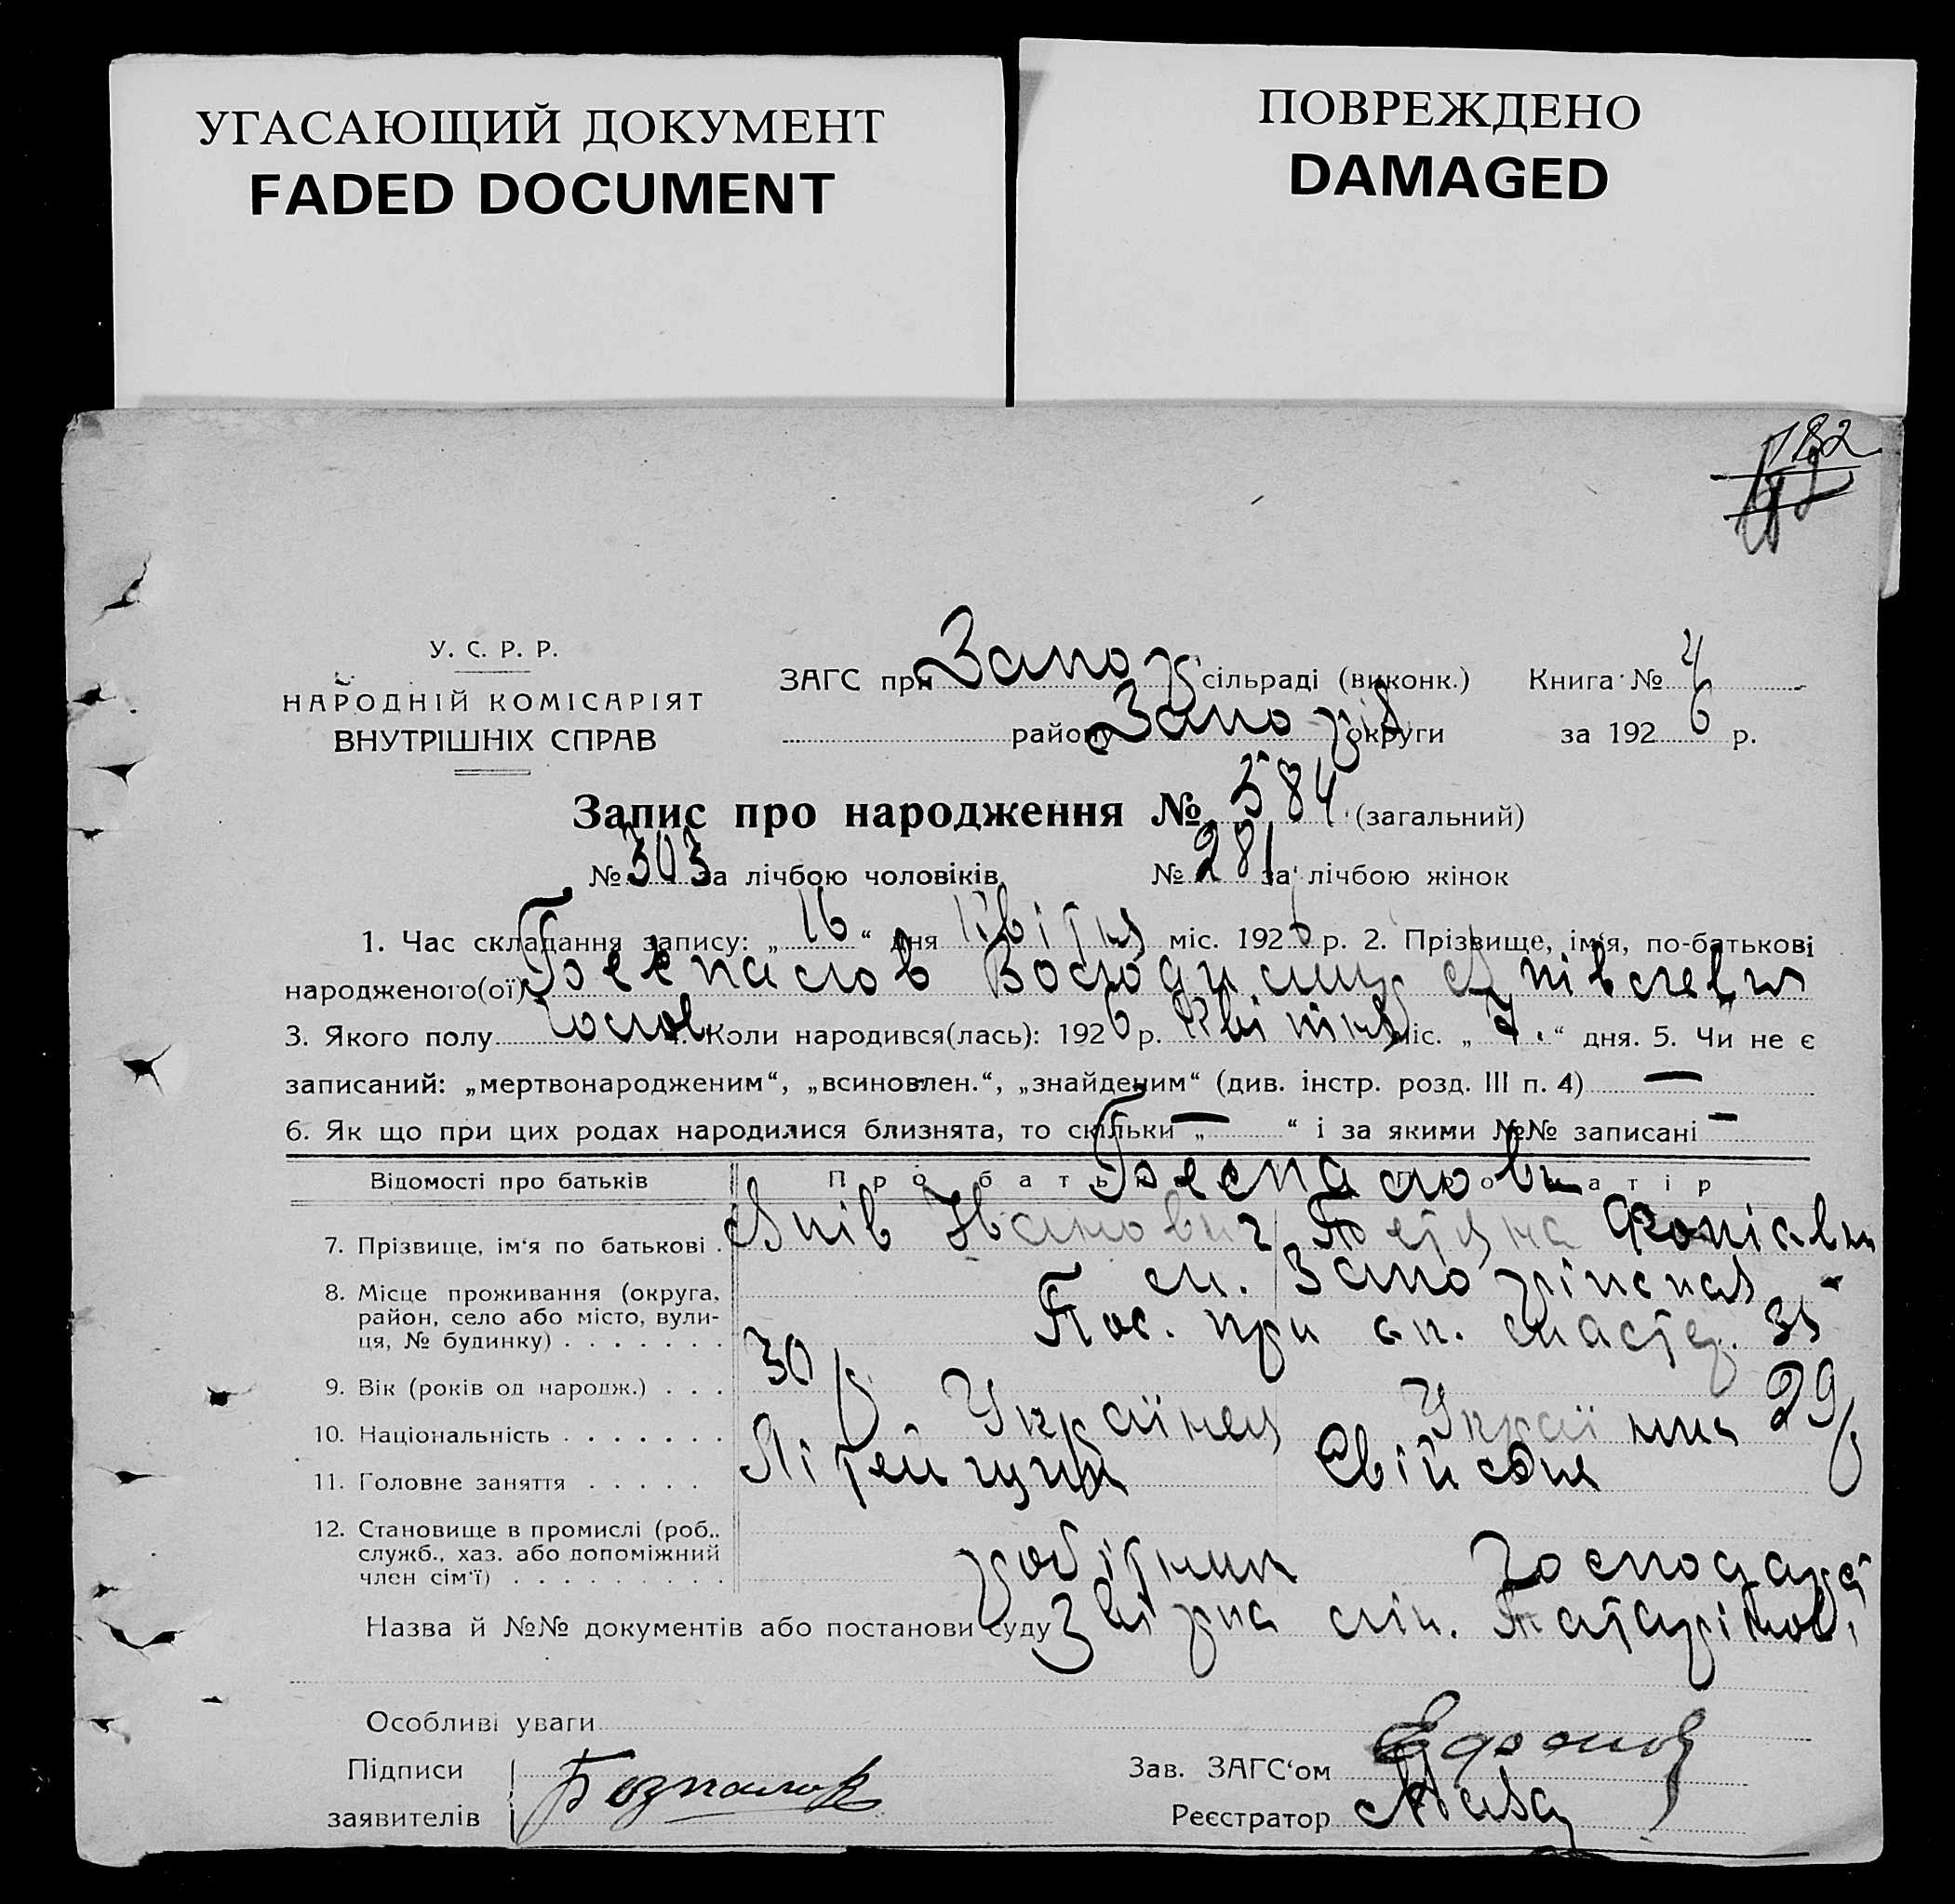 УГАСАЮЩИЙ ДОКУМЕНТ
FADED DOCUMENT
ПОВРЕЖДЕНО
DAMAGED
182
У. С. Р. Р.
НАРОДНІЙ КОМІСАРІЯТ
ВНУТРІШНІХ СПРАВ
ЗАГС при Запор сільраді (виконк.) Книга № 4
району Запоріз округи за 1926 р.
Запис про народження № 584 (загальний)
№ 303 за лічбою чоловіків № 281 за лічбою жінок
1. Час складання запису: „16“ дня Квітня міс. 1926 р. 2. Прізвище, ім‘я, по-батькові
народженого(ої) Безпалов Володимир
3. Якого полу Чолов 4. Коли народився(лась): 1926 р. Квітня міс. „7.“ дня. 5. Чи не є
записаний: „мертвонародженим“, „всиновлен.“, „знайденим“ (див. інстр. розд. III п. 4) —
6. Як що при цих родах народилися близнята, то скільки „—“ і за якими №№ записані —
Відомості про батьків Про батька Про матір
Безпалови
7. Прізвище, ім‘я по батькові . Іванович Тетяна
8. Місце проживання (округа, м. Запоріжжя
район, село або місто, вули- Пос. при
ця, № будинку) . . . . . . .
9. Вік (років од народж.) . . . 30 р. 29 р
10. Національність . . . . . . . Українец Українка
11. Головне заняття . . . . . Літейщик
12. Становище в промислі (роб.,
служб., хаз. або допоміжний робітник
член сім‘ї) . . . . . . . . .
Назва й №№ документів або постанови суду
Особливі уваги
Підписи
заявителів Безпалов
Зав. ЗАГС‘ом
Реєстратор